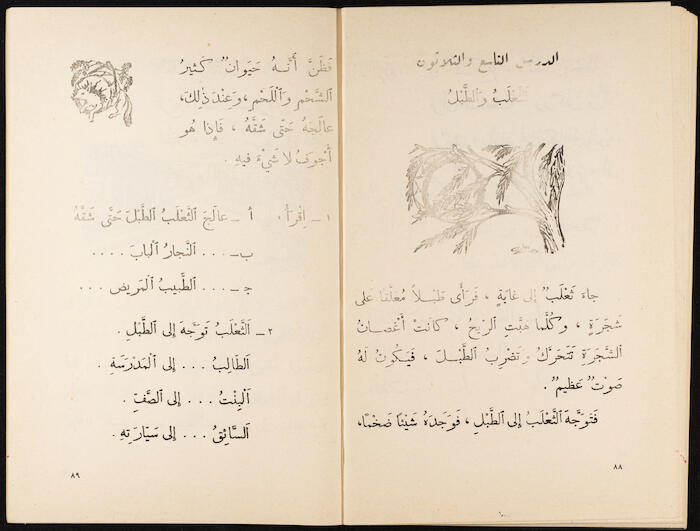 الدرس التاسع والثلاثون
الثَّعْلَبُ وَالطَّبْلُ
جاءَ ثَعْلَبٌ إِلى غابَةٍ ، فَرَأَى طَبْلاً مُعَلَّقًا عَلى
شَجَرَةٍ ، وَكُلَّما هَبَّتِ الرّيحُ ، كانَتْ أَغْصانُ
الشَّجَرَةِ تَتَحَرَّكُ وَتَضْرِبُ الطَّبْلَ ، فَيَكُونُ لَهُ
صَوْتٌ عَظيمٌ .
فَتَوَجَّهَ الثَّعْلَبُ إِلى الطَّبْلِ ، فَوَجَدَهُ شَيْئًا ضَخْمًا،
٨٨
فَظَنَّ أَنَّهُ حَيَوانٌ كَثيرُ
الشَّحْمِ وَاللَّحْمِ ، وَعِنْدَ ذٰلِكَ،
عالَجَهُ حَتّى شَقَّهُ ، فَإِذا هُوَ
أَجْوَفُ لا شَيْءَ فيهِ .
١ ــ اِقْرَأْ : أ ــ عالَجَ الثَّعْلَبُ الطَّبْلَ حَتّى شَقَّهُ
ب ــ ... النَّجارُ البابَ ....
ج ــ ... الطَّبيبُ المَريضَ ...
٢ ــ الثَّعْلَبُ تَوَجَّهَ إِلى الطَّبْلِ .
الطّالِبُ ... إِلى المَدْرَسَةِ .
البِنْتُ ... إِلى الصَّفِّ .
السّائِقُ ... إِلى سَيّارَتِهِ .
٨٩